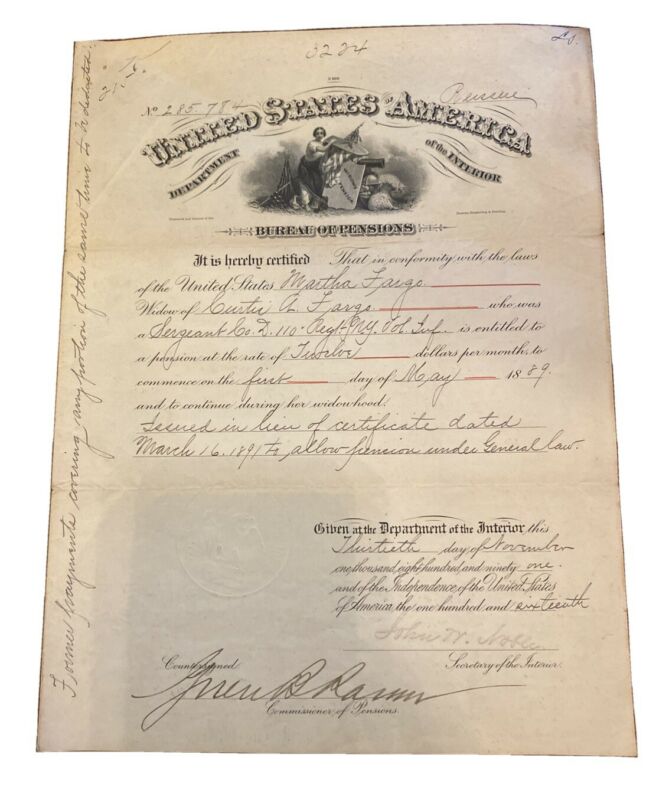 3224
Nº 285.784
UNITED STATES OF AMERICA
DEPARTMENT
of the INTERIOR
BUREAU OF PENSIONS
It is hereby certified That in conformity with the laws
of the United States Martha Fargo
Widow of Curtis A. Fargo who was
a Sergeant Co. D. 110" Regt. N.Y. Vol. Inf. is entitled to
a pension at the rate of Twelve dollars per month, to
commence on the first day of May 1889.
and to continue during her widowhood.
Issued in lieu of certificate dated
March 16. 1891 to allow pension under General law.
Given at the Department of the Interior this
Thirtieth day of November
one thousand, eight hundred, and ninety one.
and of the Independence of the United States
of America the one hundred and sixteenth
John W. Noble
Countersigned.
Secretary of the Interior.
Green B Raum
Commissioner of Pensions.
Former payments covering any portion of the same time to be deducted.